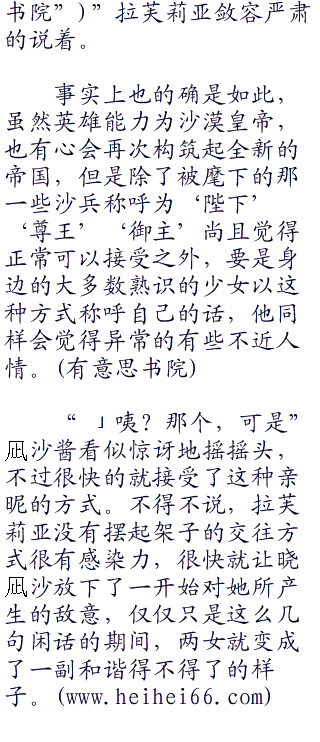 书院”)”拉芙莉亚敛容严肃
的说着。
事实上也的确是如此，
虽然英雄能力为沙漠皇帝，
也有心会再次构筑起全新的
帝国，但是除了被麾下的那
一些沙兵称呼为‘陛下’
‘尊王’‘御主’尚且觉得
正常可以接受之外，要是身
边的大多数熟识的少女以这
种方式称呼自己的话，他同
样会觉得异常的有些不近人
情。(有意思书院)
“」咦？那个，可是”
凪沙酱看似惊讶地摇摇头，
不过很快的就接受了这种亲
昵的方式。不得不说，拉芙
莉亚没有摆起架子的交往方
式很有感染力，很快就让晓
凪沙放下了一开始对她所产
生的敌意，仅仅只是这么几
句闲话的期间，两女就变成
了一副和谐得不得了的样
子。(www.heihei66.com)